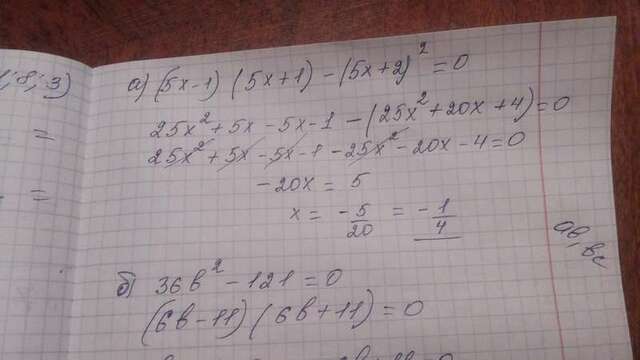 1; 8; 3)
а) (5x-1) (5x+1) - (5x+2)² = 0
=
25x² + 5x - 5x - 1 - (25x² + 20x + 4) = 0
25x² + 5x - 5x - 1 - 25x² - 20x - 4 = 0
=
-20x = 5
x = -5/20 = -1/4
ав, вс
б) 36в² - 121 = 0
(6в - 11) (6в + 11) = 0